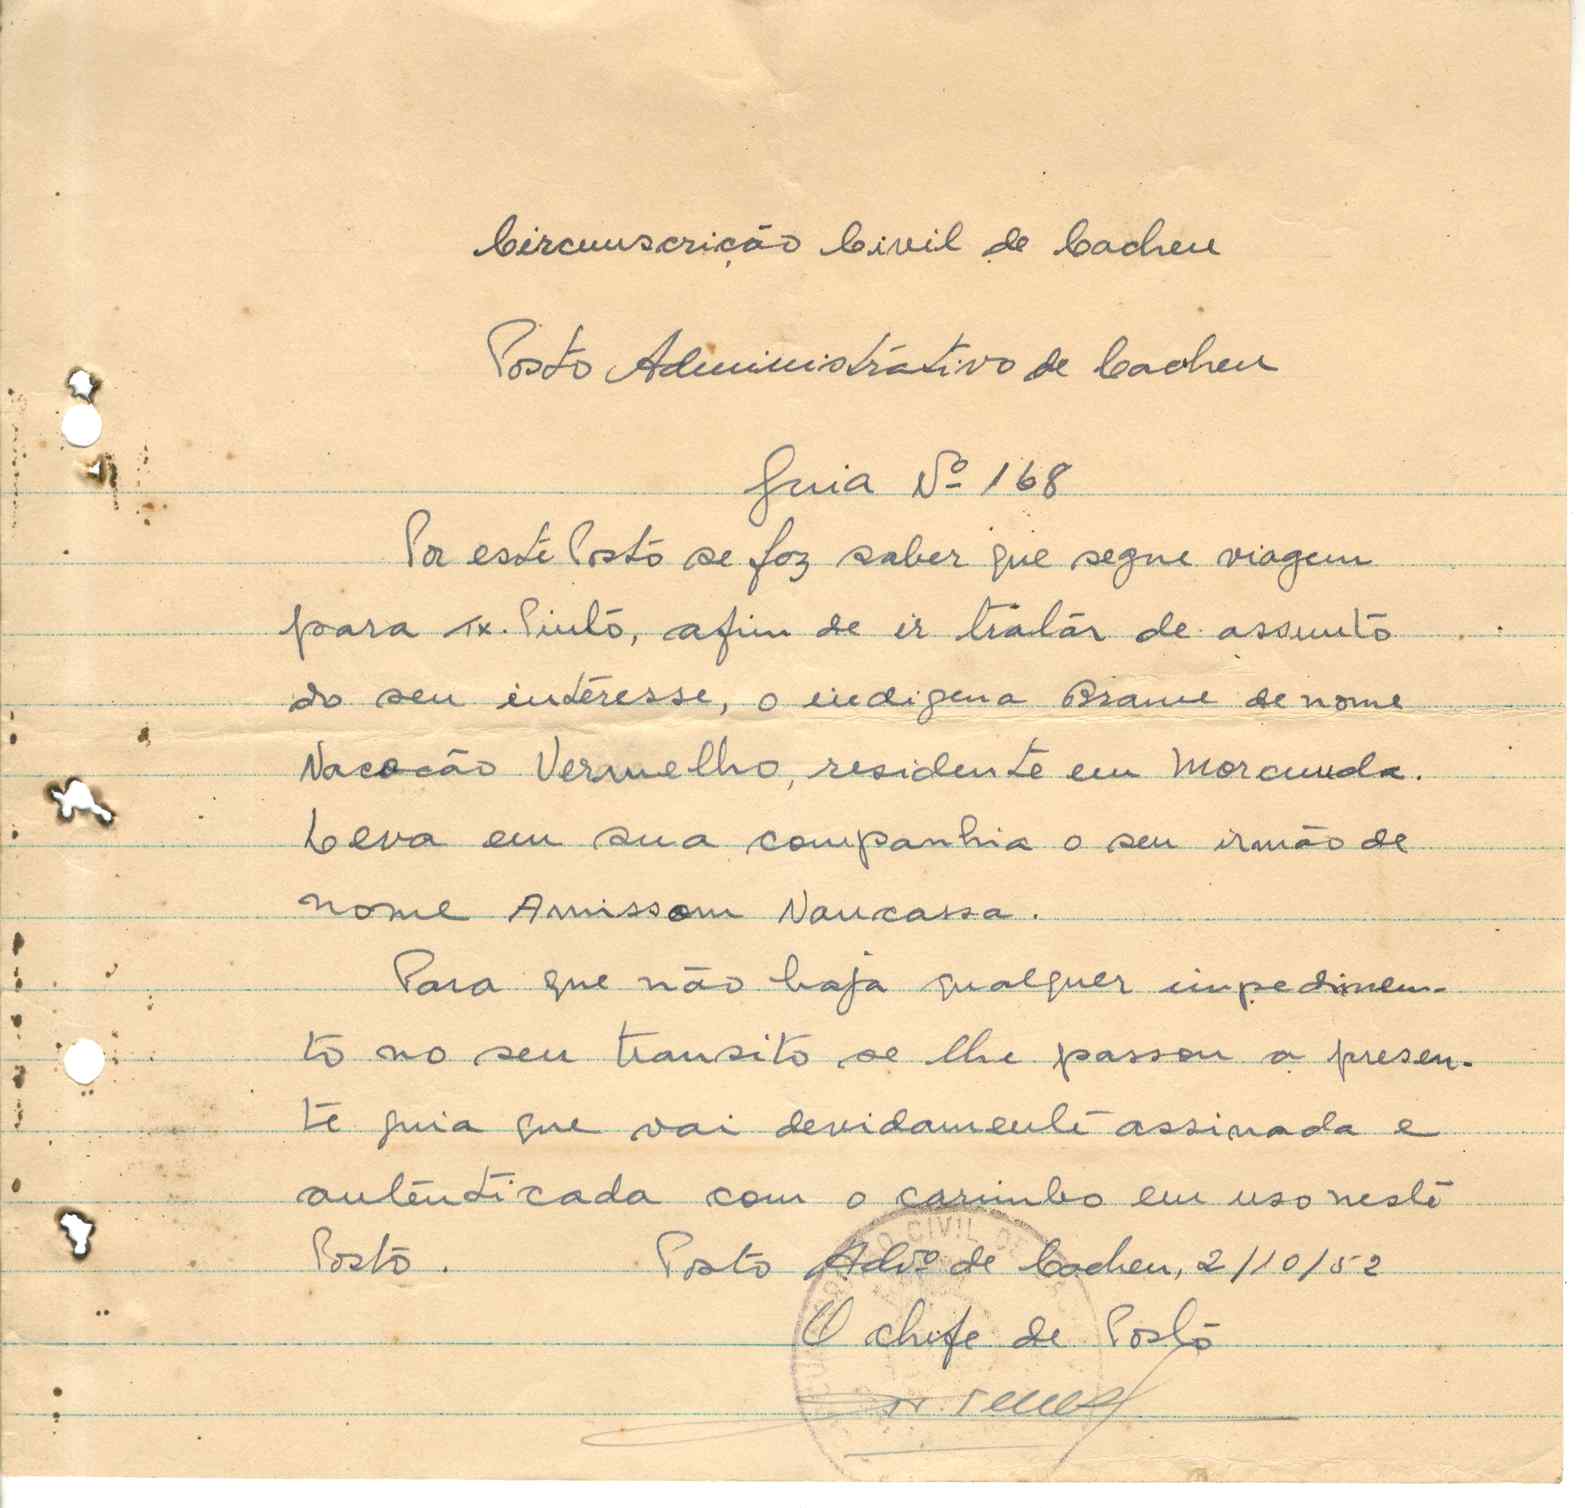 Circunscrição Civil de Cacheu
Posto Administrativo de Cacheu
Guia Nº 168
Por este Posto se faz saber que segue viagem
para Tx. Pinto, afim de ir tratár de assunto
do seu intéresse, o indigena Brame de nome
Nacocão Vermelho, residente em Morcunda.
Leva em sua companhia o seu irmão de
nome Amissom Naucassa.
Para que não haja qualquer impedimen-
to no seu transito se lhe passou a presen-
te guia que vai devidamente assinada e
auténticada com o carimbo em uso neste
Posto. Posto Advº de Cacheu, 2/10/52
O chefe de Posto
CIVIL DE